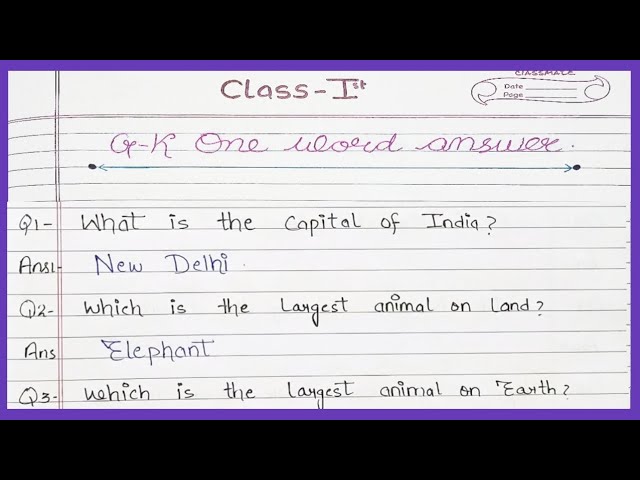 CLASSMATE
Class-Ist
Date
Page
G-K One word answer.
Q1- What is the capital of India?
Ans1- New Delhi.
Q2- Which is the largest animal on land?
Ans Elephant
Q3- Which is the largest animal on Earth?